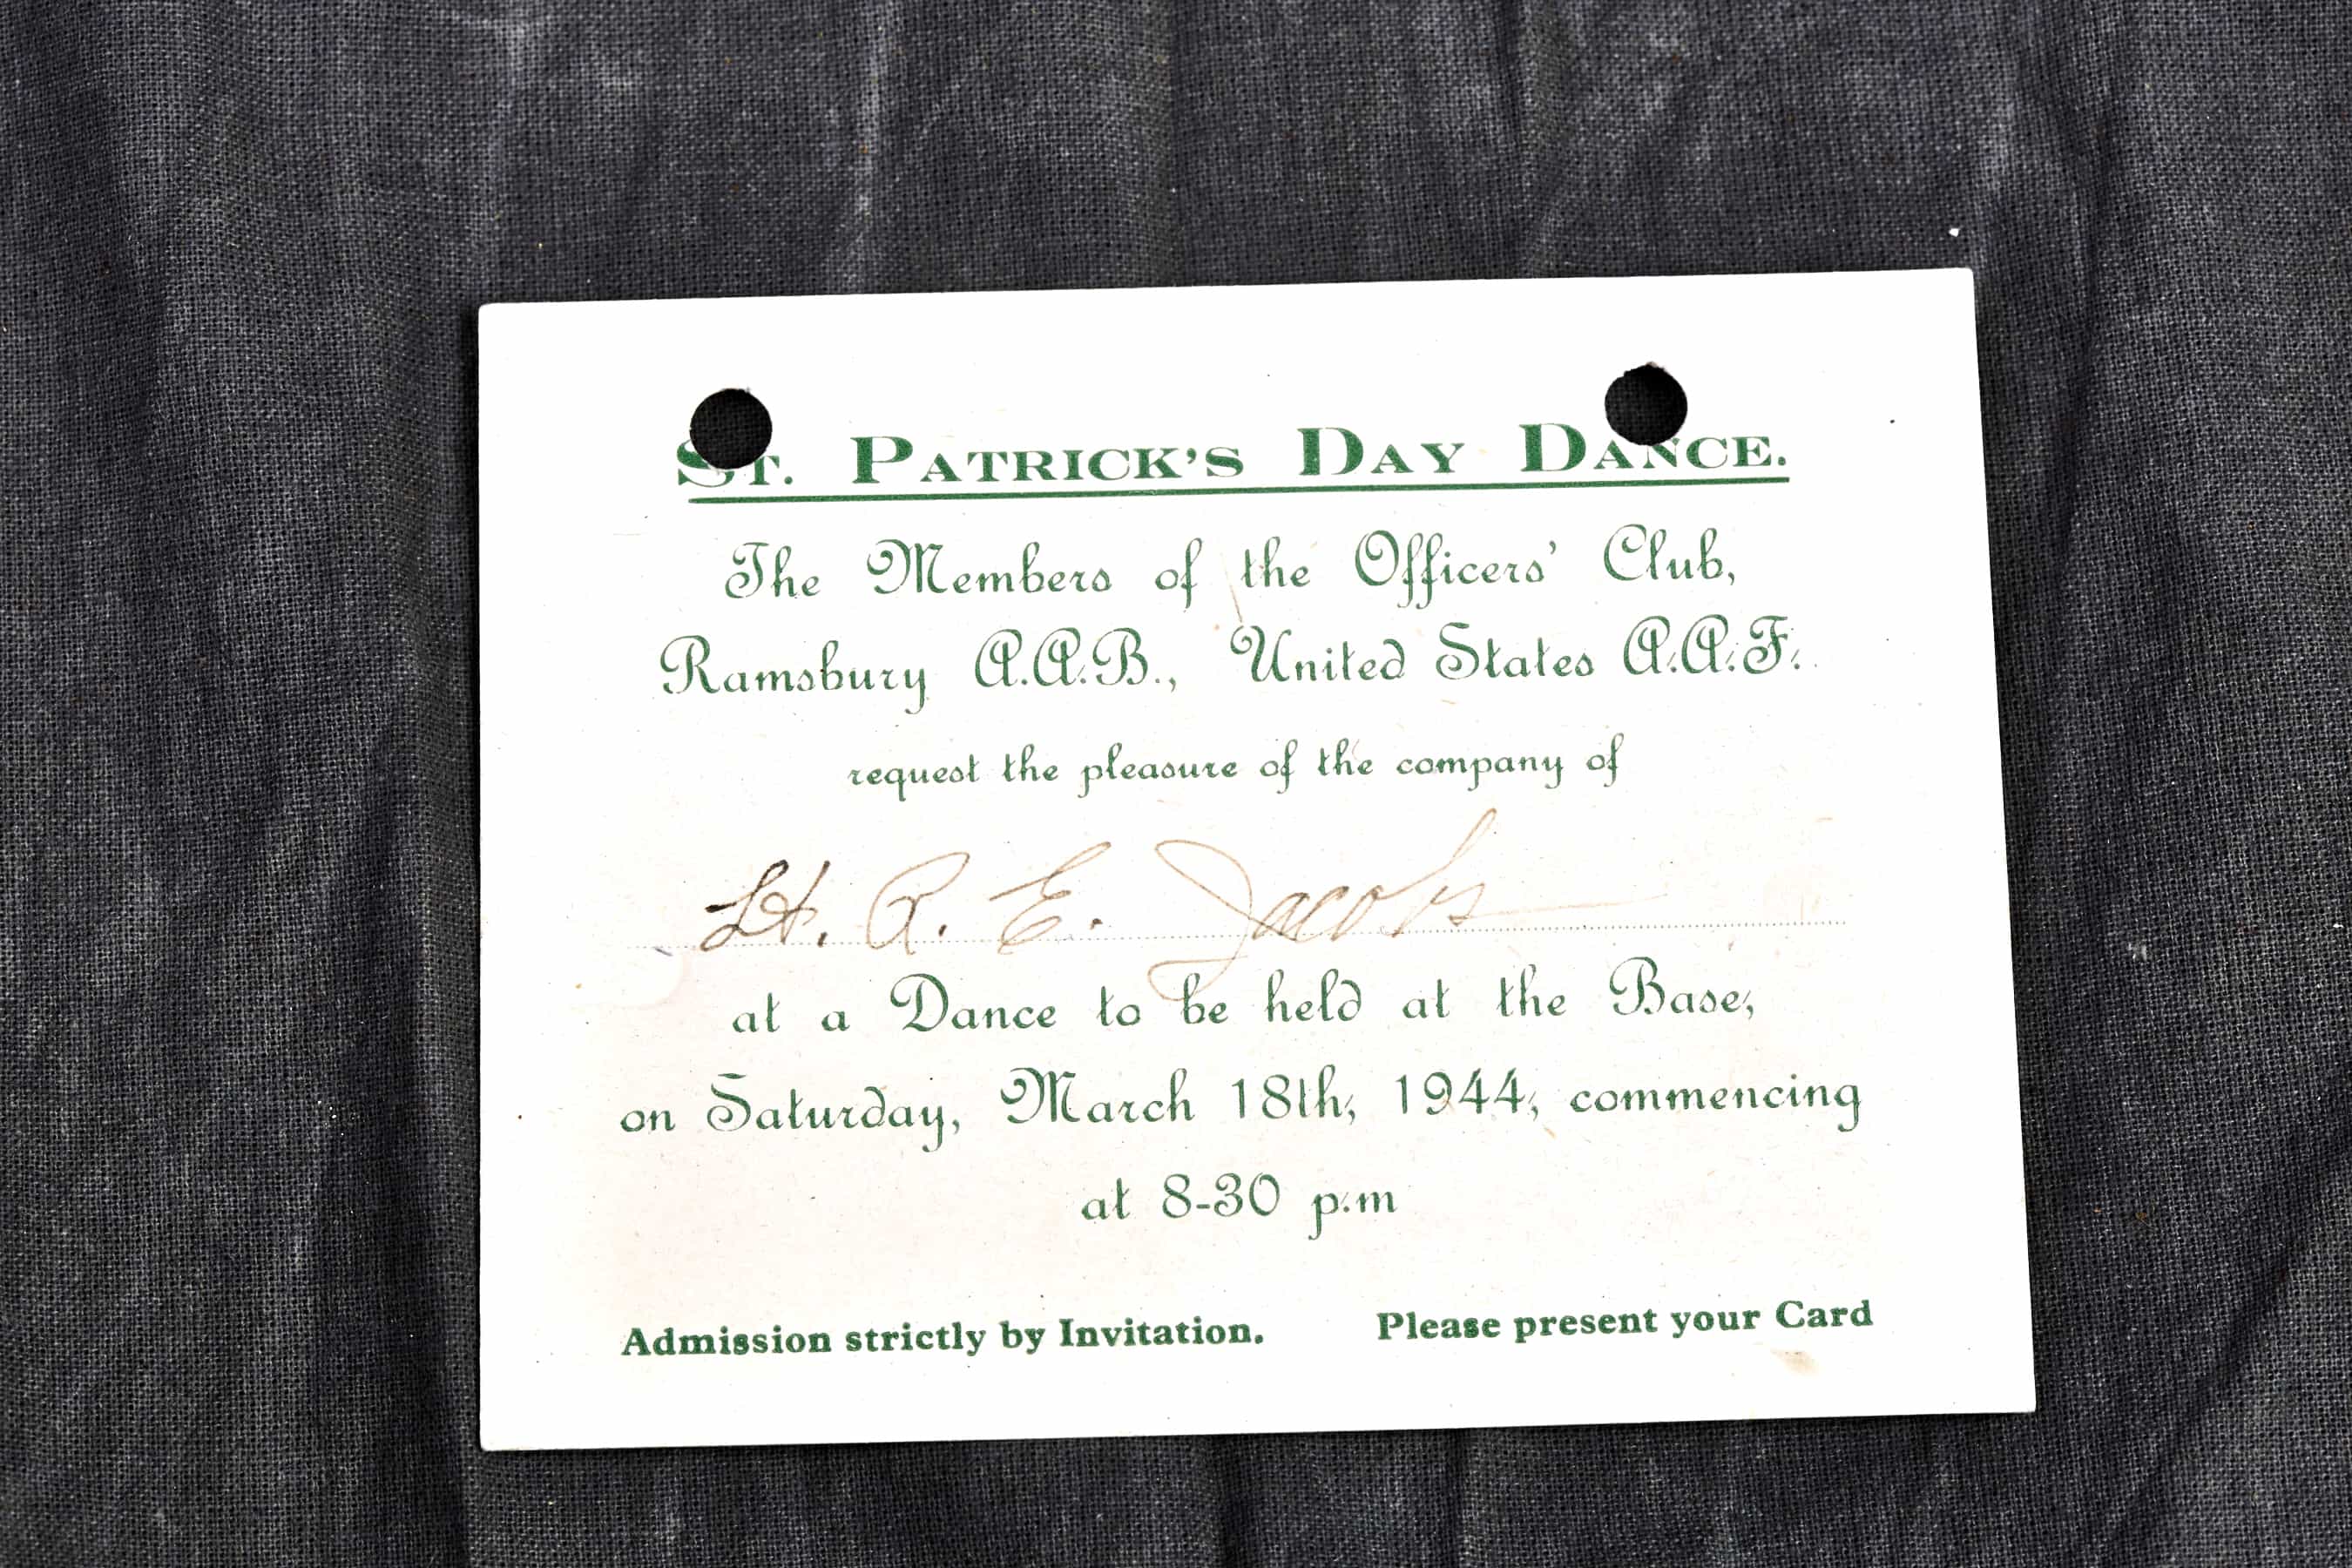 ST. PATRICK'S DAY DANCE.
The Members of the Officers' Club,
Ramsbury A.A.B., United States A.A.F.
request the pleasure of the company of
Lt. R. E. Jacobs
at a Dance to be held at the Base,
on Saturday, March 18th, 1944, commencing
at 8-30 p.m
Admission strictly by Invitation. Please present your Card